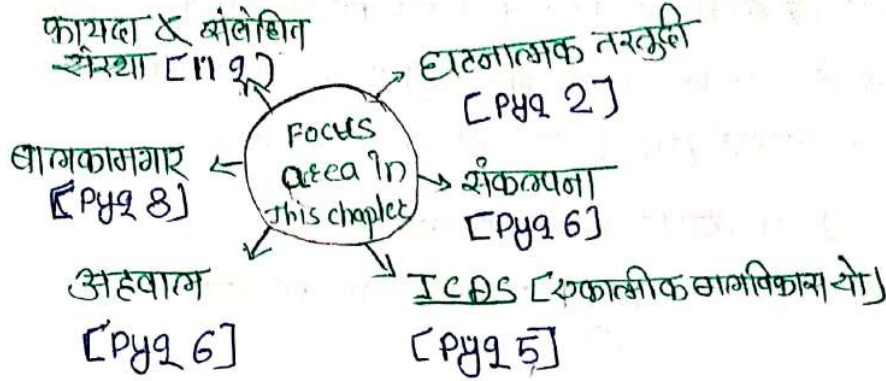 कायदा & संलेखित
संस्था [11 9]
घटनात्मक तरतुदी
[PYQ 2]
Focus
area in
this chapter
बालकामगार
[PYQ 8]
संकल्पना
[PYQ 6]
अहवाल
[PYQ 6]
ICDS [एकात्मीक बालविकास यो]
[PYQ 5]